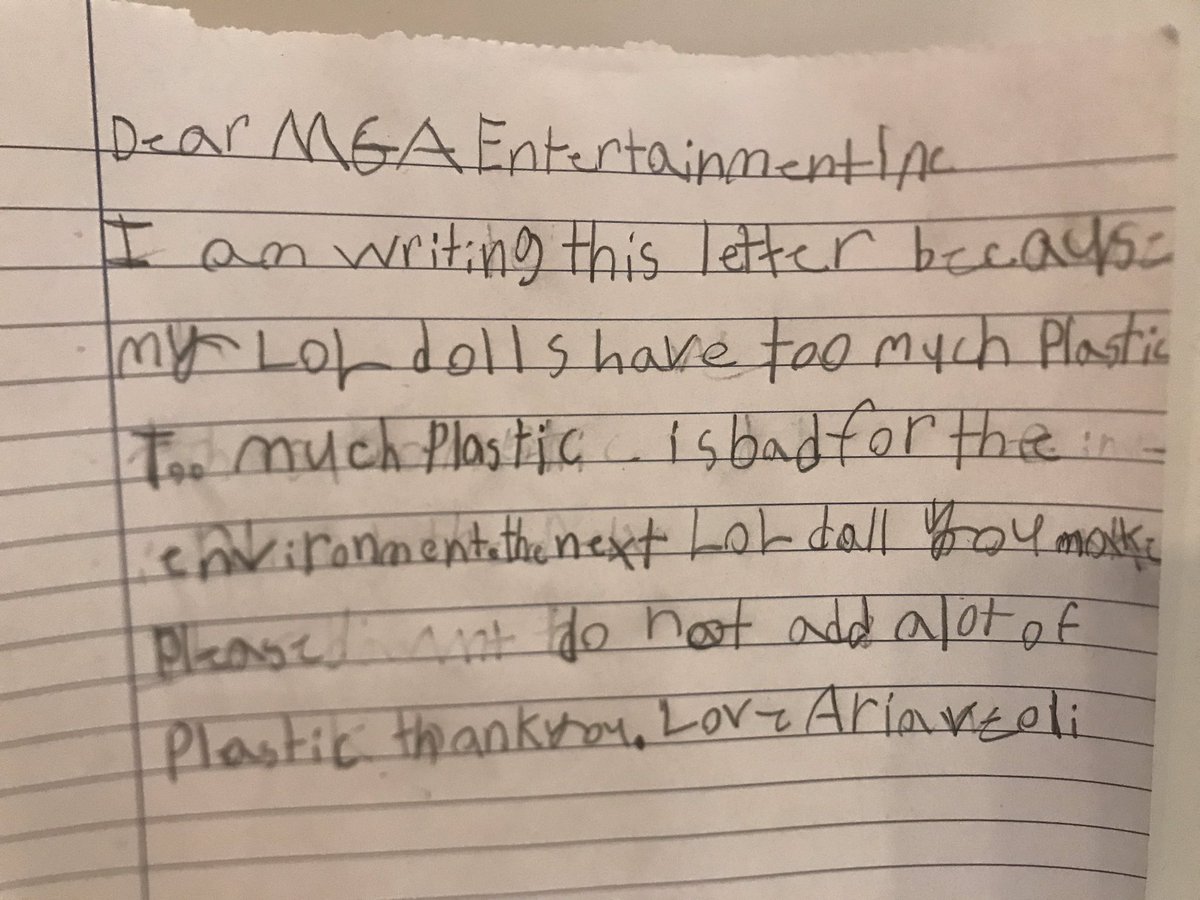 Dear MGA Entertainment Inc
I am writing this letter because
my LOL dolls have too much Plastic
Too much Plastic is bad for the
environment. the next LOL doll you make
Please do not add alot of
Plastic. thank you. Love